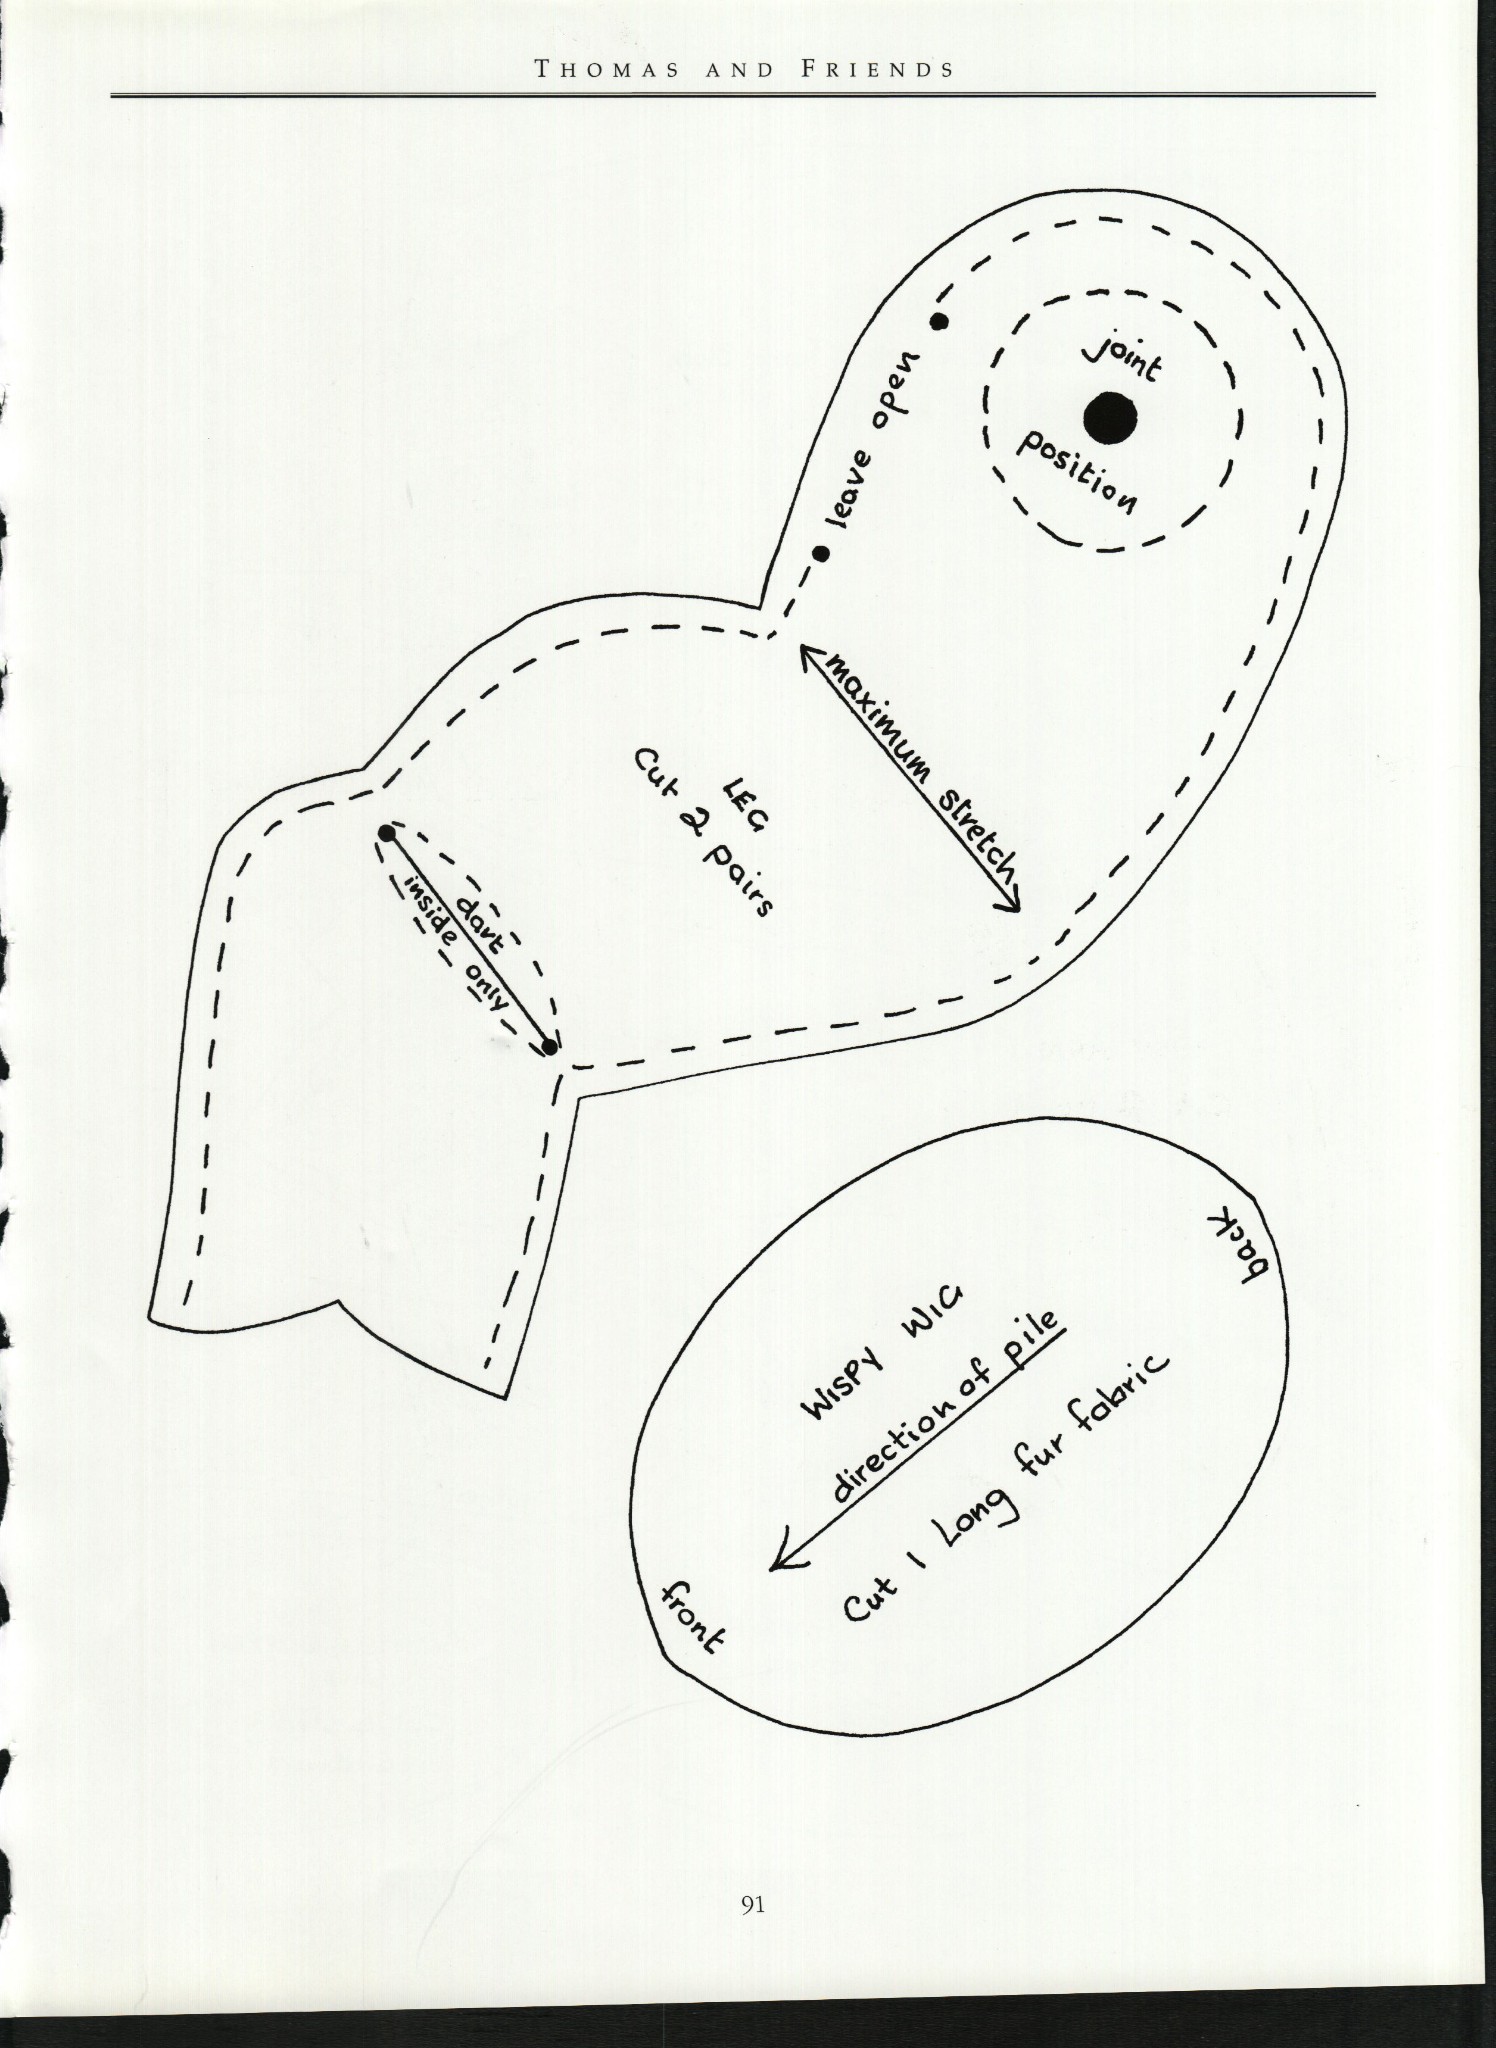 THOMAS AND FRIENDS
joint
position
leave open
maximum stretch
LEG
Cut 2 pairs
dart
inside only
back
WISPY WIG
direction of pile
Cut 1 Long fur fabric
front
91